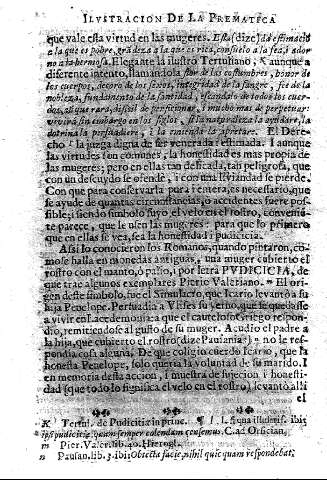 ILVSTRACION DE LA PREMATICA
que vale esta virtud en las mugeres. Esta (dize) da estimaciō
a la que es pobre, grādeza a la que es rica, consuelo a la fea, i ador
no a la hermosa. Elegante la ilustro Tertuliano, K aunque a
diferente intento, llamandola flor de las costumbres, honor de
los cuerpos, decoro de los sexos, integridad de la sangre, fee de la
nobleza, fundamento de la santidad,
vivirá sin embargo en los siglos, si la naturaleza la ayudare, la
dotrina la persuadiere, i la emienda la apretare. El Dere-
cho l la juzga digna de ser venerada i estimada. I aunque
las virtudes son comunes, la honestidad es mas propia de
las mugeres; pero en ellas tan delicada, tan peligrosa, que
con un descuydo se ofende, i con una liviandad se pierde.
Con que para conservarla pura i entera, es necessario, que
se ayude de quantas circunstancias, o accidentes fuere pos-
sible; i siendo simbolo suyo el velo en el rostro, convenie-
te parece, que le usen las mugeres: para que lo primero
que en ellas se vea, sea la honestidad i pudicicia.
Assi lo conocieron los Romanos, quando pintaron, co-
mo se halla en monedas antiguas, una muger cubierto el
rostro con el manto, o palio, i por letra PVDICICIA, de
que trae algunos exemplares Pierio Valeriano. m El ori-
gen deste simbolo, fue el Simulacro, que Icario levantó a su
hija Penelope. Persuadia a Vlises su yerno, que se quedasse
a vivir en Lacedemonia: a que el cauteloso Griego respon-
dio, remitiendose al gusto de su muger. Acudio el padre a
la hija, que cubierto el rostro (dize Pausanias n) no le res-
pondio cosa alguna. De que coligio cuerdo Icario, que la
honesta Penelope, solo queria la voluntad de su marido. I
en memoria desta accion, i muestra de sujecion i honesti-
dad (que todo lo significa el velo en el rostro) levantó alli
el
K Tertul. de Pudicitia in princ. ¶ l L. si qua illustris. ibi:
ipsi pudicitiæ, quam semper colendam censemus. C. ad Orfician.
m Pier. Valer. lib. 40. Hierogl.
n Pausan. lib. 3. ibi: Obtecta facie, nihil quic quam respondebat.